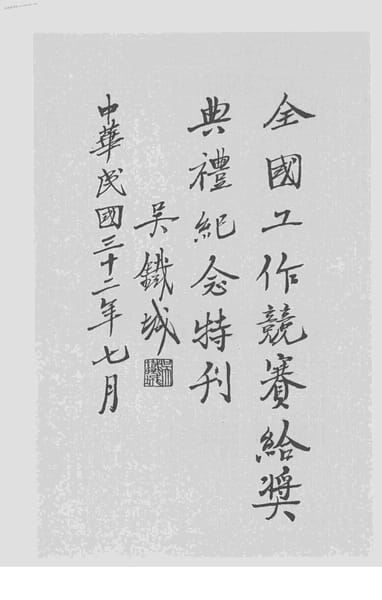 全國工作競賽給獎
典禮紀念特刊
吳鐵城
中華民國三十二年七月